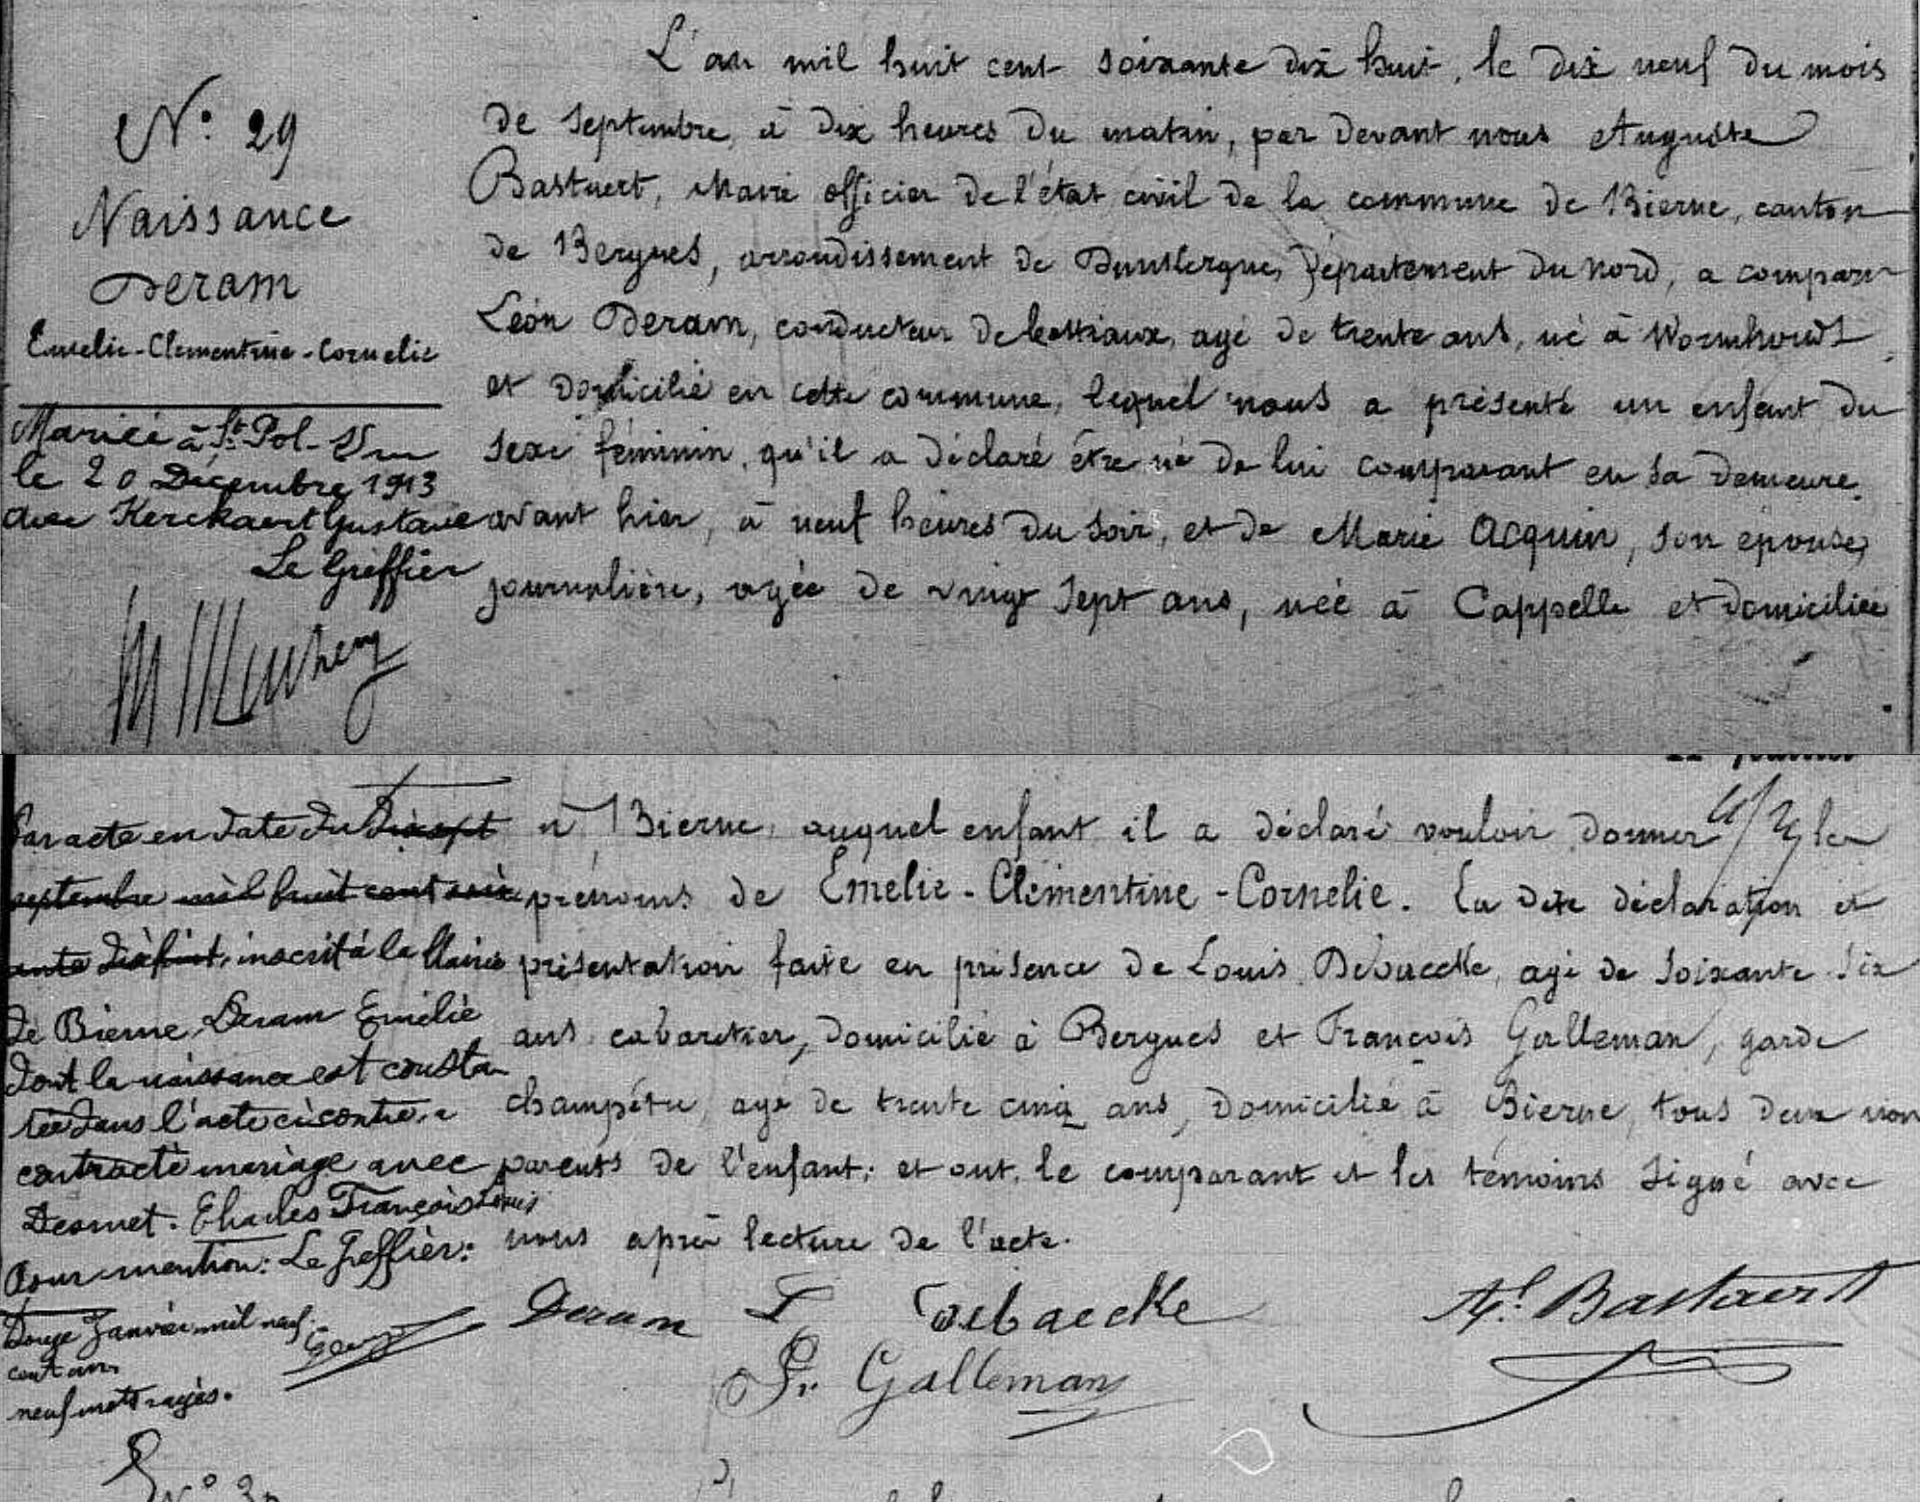 N° 29
Naissance
Deram
Emelie-Clementine-Cornelie
Mariée à St Pol-s/m
le 20 Décembre 1913
avec Kerckaert Gustave
Le Greffier
L'an mil huit cent soixante dix huit, le dix neuf du mois
de septembre, à dix heures du matin, par devant nous Auguste
Bastaert, Maire officier de l'état civil de la commune de Bierne, canton
de Bergues, arrondissement de Dunkerque, Département du nord, a comparu
Léon Deram, conducteur de bestiaux, agé de trente ans, né à Wormhoudt
et domicilié en cette commune, lequel nous a présenté un enfant du
sexe féminin, qu'il a déclaré être né de lui comparant en sa demeure,
avant hier, à neuf heures du soir, et de Marie Acquin, son épouse,
journalière, agée de vingt sept ans, née à Cappelle et domiciliée
à Bierne, auquel enfant il a déclaré vouloir donner les
prénoms de Emelie-Clémentine-Cornelie. La dite déclaration et
présentation faite en présence de Louis Debaecke, agé de soixante six
ans cabaretier, domicilié à Bergues et François Galleman, garde
champêtre, agé de trente cinq ans, domicilié à Bierne, tous deux non
parents de l'enfant; et ont, le comparant et les témoins signé avec
nous après lecture de l'acte.
Deram L Debaecke At. Bastaert
Fr. Galleman
Par acte en date du dix sept
septembre mil huit cent soix
ante dix huit, inscrit à la Mairie
de Bierne, Deram Emélie
dont la naissance est consta
tée dans l'acte ci contre, a
contracté mariage avec
Desmet. Charles François Louis
Pour mention: Le Greffier:
Douze Janvier mil neuf
cent un
neuf mots rayés.
N° 30